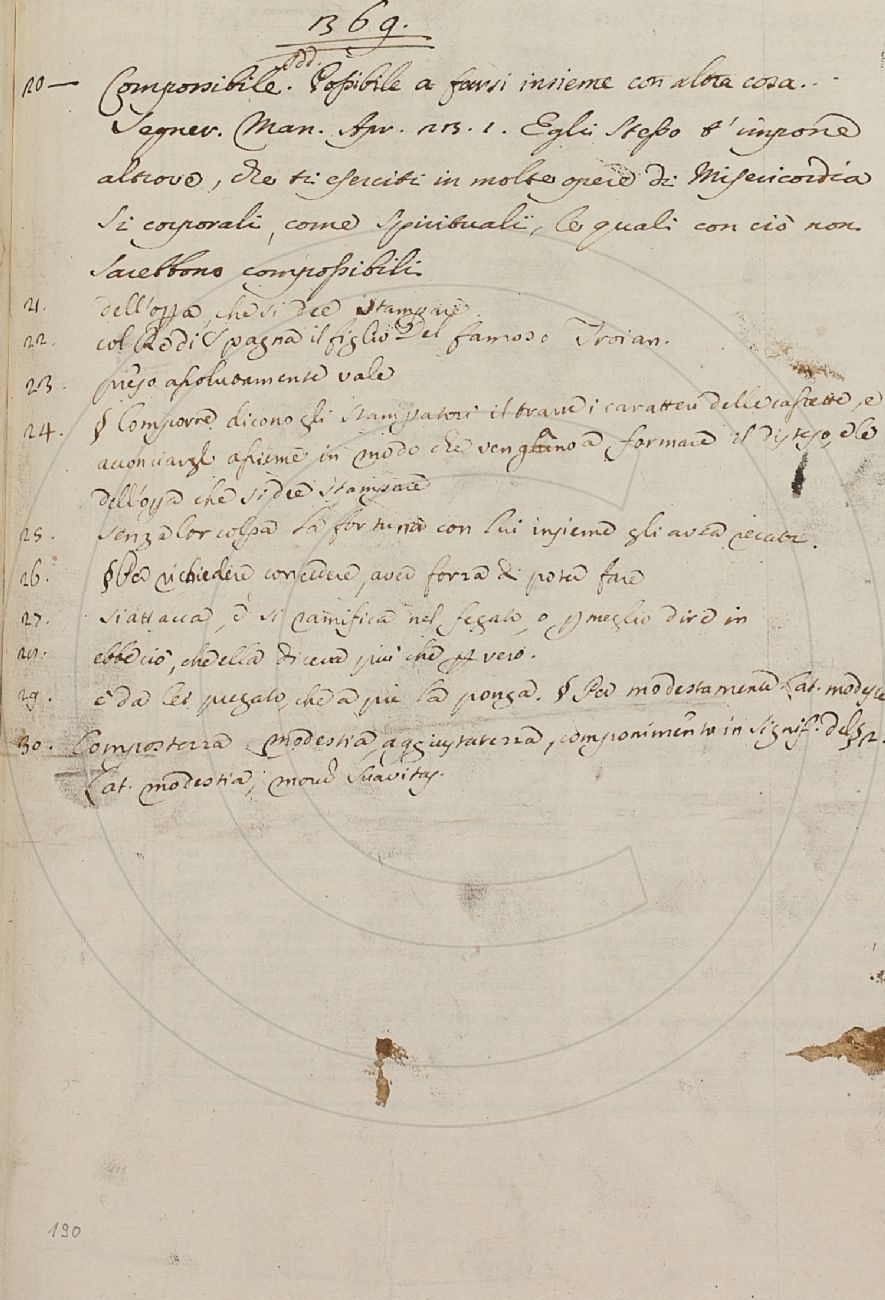 1369.
20 — Compossibile. Add. Possibile a farsi insieme con altra cosa.
Segner. Man. Apr. 23. 1. Egli stesso t'impone
altrove, che ti eserciti in molte opere di Misericordia
Si corporali, come Spirituali, le quali con ciò non
sarebbono compossibili
21. dell'opa, che si dee stampare
22. col Re di Spagna il figlio del famoso Troian.
23. preso assolutamente vale
24. § Comporre dicono gli Stampatori il trarre i caratteri delle cassette, e
acconciargli assieme in modo che vengano a formare il disteso, e le
dell'opa che si dee stampare
25. senza lor colpa la fortuna con lui insieme gli avea recati.
26. § Per richiedere concedere, aver forza di poter fare
27. si attacca, e si ramifica nel fegato, o p meglio dire in
28. ebbe ciò, che ella diceva più che p vero.
29. è da lei pregato, che a piè la ponga. § Per modestamente Lat. modeste
30. Compostezza modestia, aggiustatezza, componimento in signif. del § 2.
Lat. modestia, morū suavitas.
190